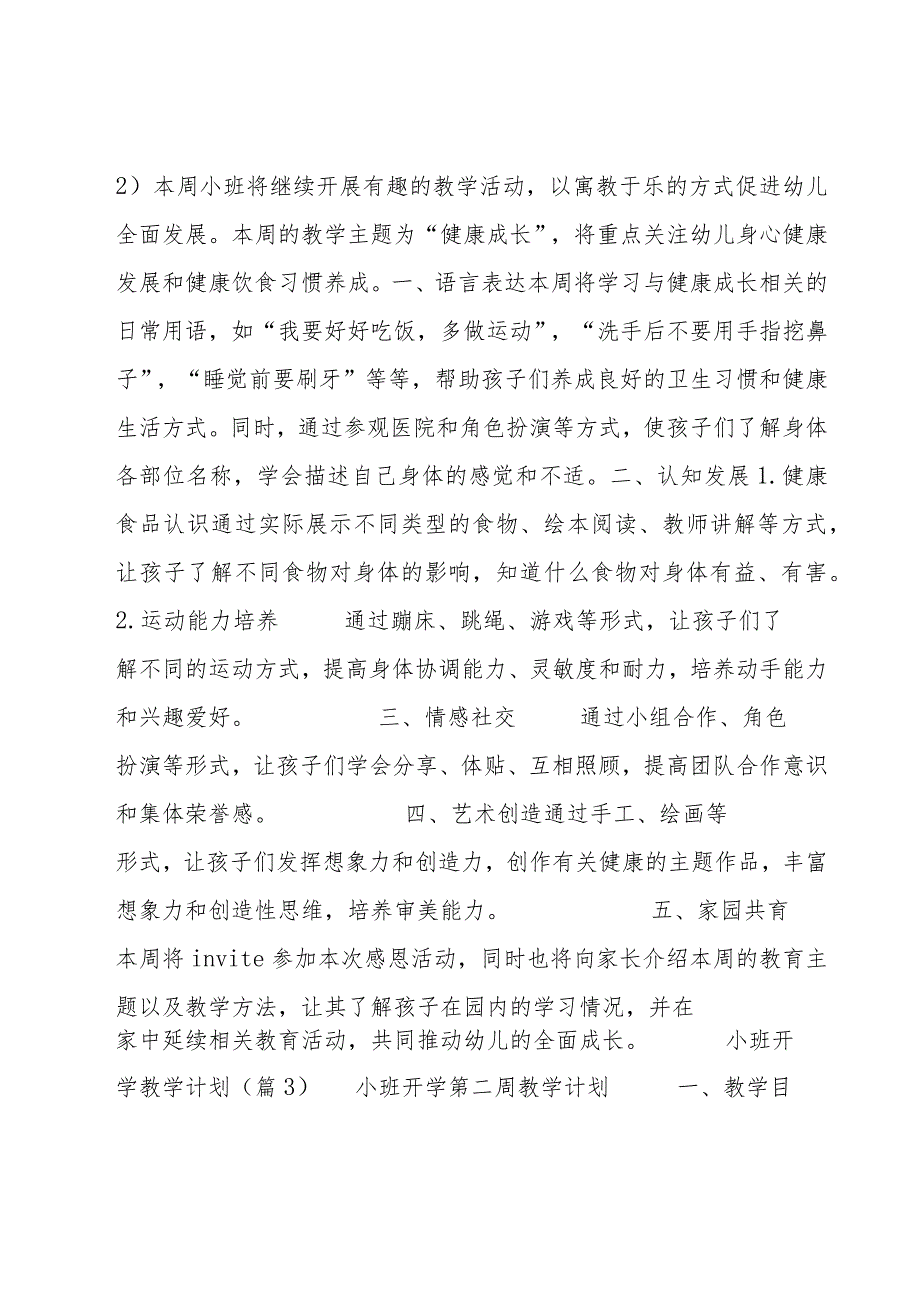 2）本周小班将继续开展有趣的教学活动，以寓教于乐的方式促进幼儿
全面发展。本周的教学主题为“健康成长”，将重点关注幼儿身心健康
发展和健康饮食习惯养成。一、语言表达本周将学习与健康成长相关的
日常用语，如“我要好好吃饭，多做运动”，“洗手后不要用手指挖鼻
子”，“睡觉前要刷牙”等等，帮助孩子们养成良好的卫生习惯和健康
生活方式。同时，通过参观医院和角色扮演等方式，使孩子们了解身体
各部位名称，学会描述自己身体的感觉和不适。二、认知发展 1.健康
食品认识通过实际展示不同类型的食物、绘本阅读、教师讲解等方式，
让孩子了解不同食物对身体的影响，知道什么食物对身体有益、有害。
2.运动能力培养 通过蹦床、跳绳、游戏等形式，让孩子们了
解不同的运动方式，提高身体协调能力、灵敏度和耐力，培养动手能力
和兴趣爱好。 三、情感社交 通过小组合作、角色
扮演等形式，让孩子们学会分享、体贴、互相照顾，提高团队合作意识
和集体荣誉感。 四、艺术创造通过手工、绘画等
形式，让孩子们发挥想象力和创造力，创作有关健康的主题作品，丰富
想象力和创造性思维，培养审美能力。 五、家园共育
本周将 invite 参加本次感恩活动，同时也将向家长介绍本周的教育主
题以及教学方法，让其了解孩子在园内的学习情况，并在
家中延续相关教育活动，共同推动幼儿的全面成长。 小班开
学教学计划（篇 3） 小班开学第二周教学计划 一、教学目